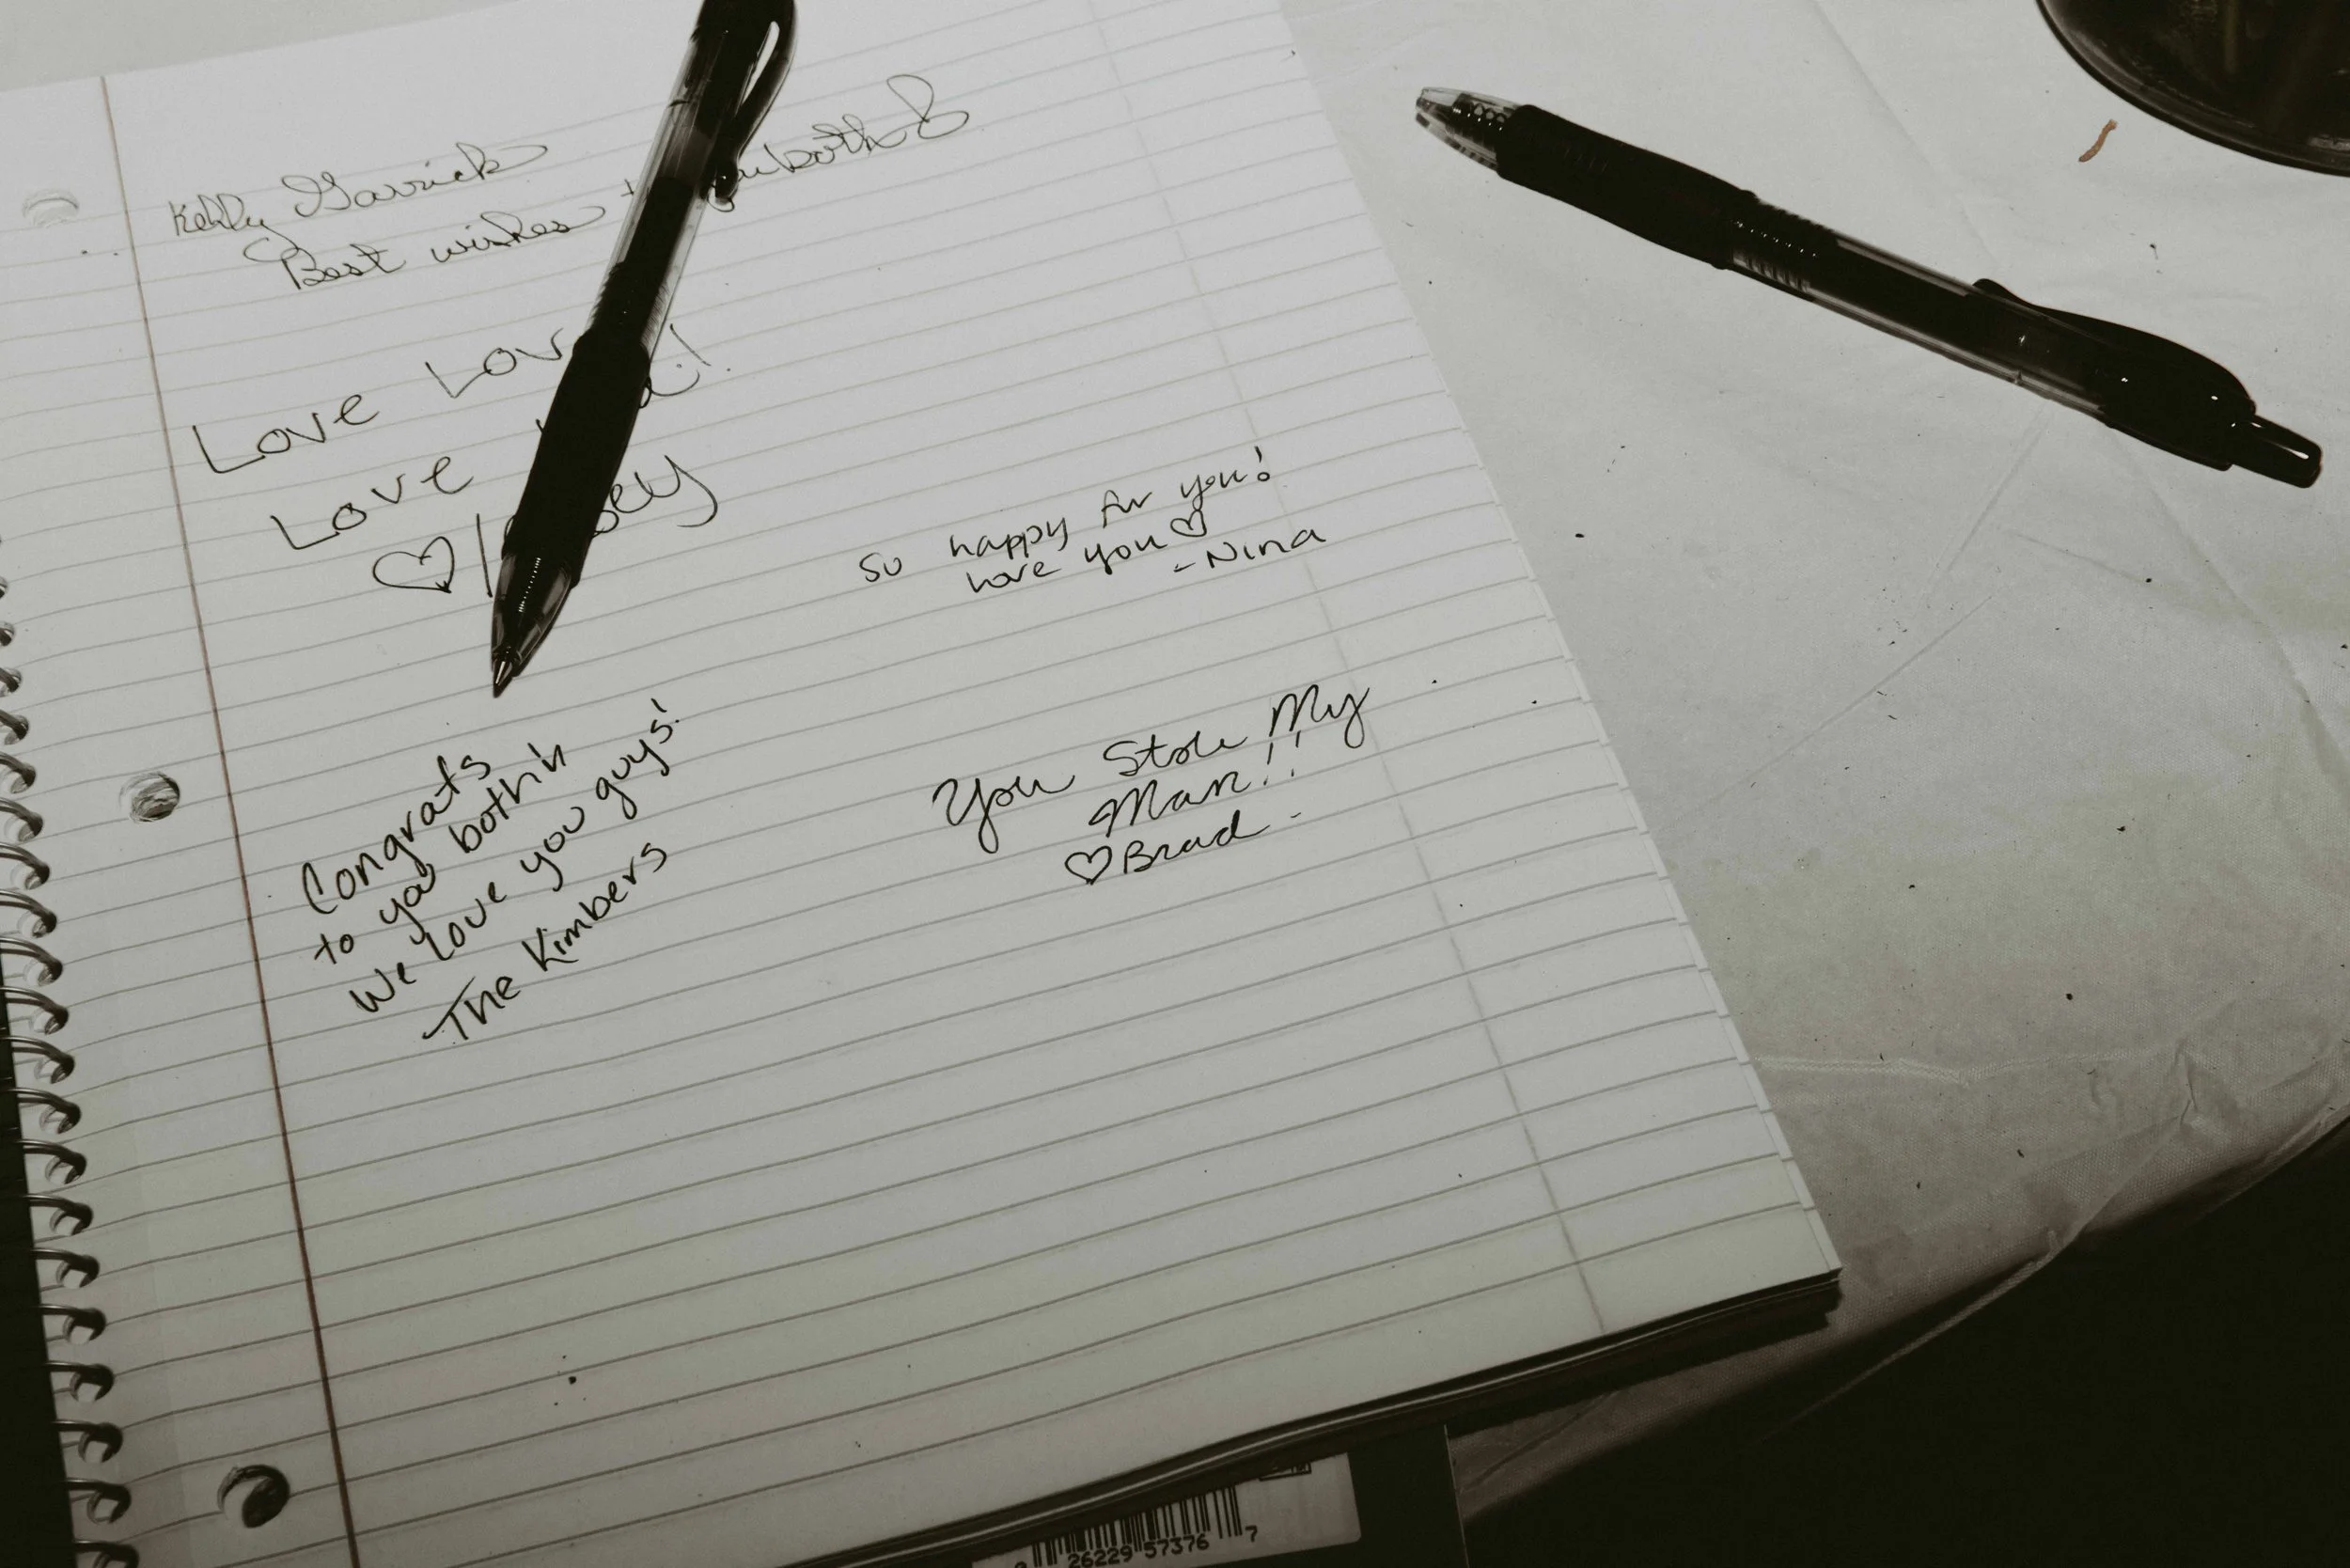 Kelly Garrick
Best wishes to you both
Love Lov
Love
so happy for you!
Love you♡
-Nina
Congrats
to you both
We love you guys!
The Kimbers
You Stole My
Man!!
♡Brad-
26229 57376 7